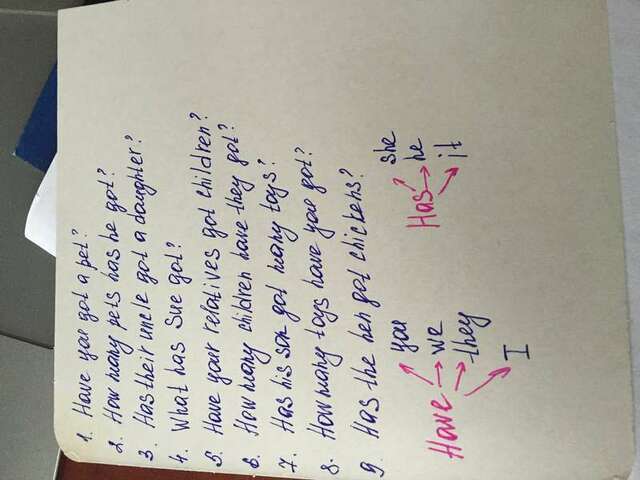 1. Have you got a pet?
2. How many pets has he got?
3. Has their uncle got a daughter?
4. What has Sue got?
5. Have your relatives got children?
6. How many children have they got?
7. Has his son got many toys?
8. How many toys have you got?
9. Has the hen got chickens?
Have
you
we
they
I
Has
she
he
it